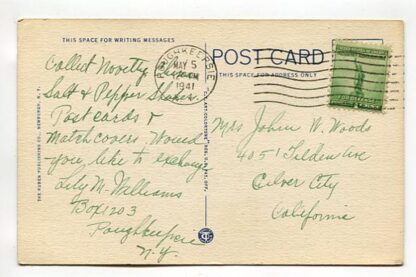 THIS SPACE FOR WRITING MESSAGES
Collect Novelty
Salt & Pepper Shaker
Post cards &
Match covers. Would
you like to exchange
Lily M. Williams
Box 1203
Poughkeepsie
N.Y.
THE RUBEN PUBLISHING CO., NEWBURGH, N. Y.
POUGHKEEPSIE
MAY 5
PM
1941
POST CARD
THIS SPACE FOR ADDRESS ONLY
Mrs John W. Woods
4051 Tilden Ave
Culver City
California